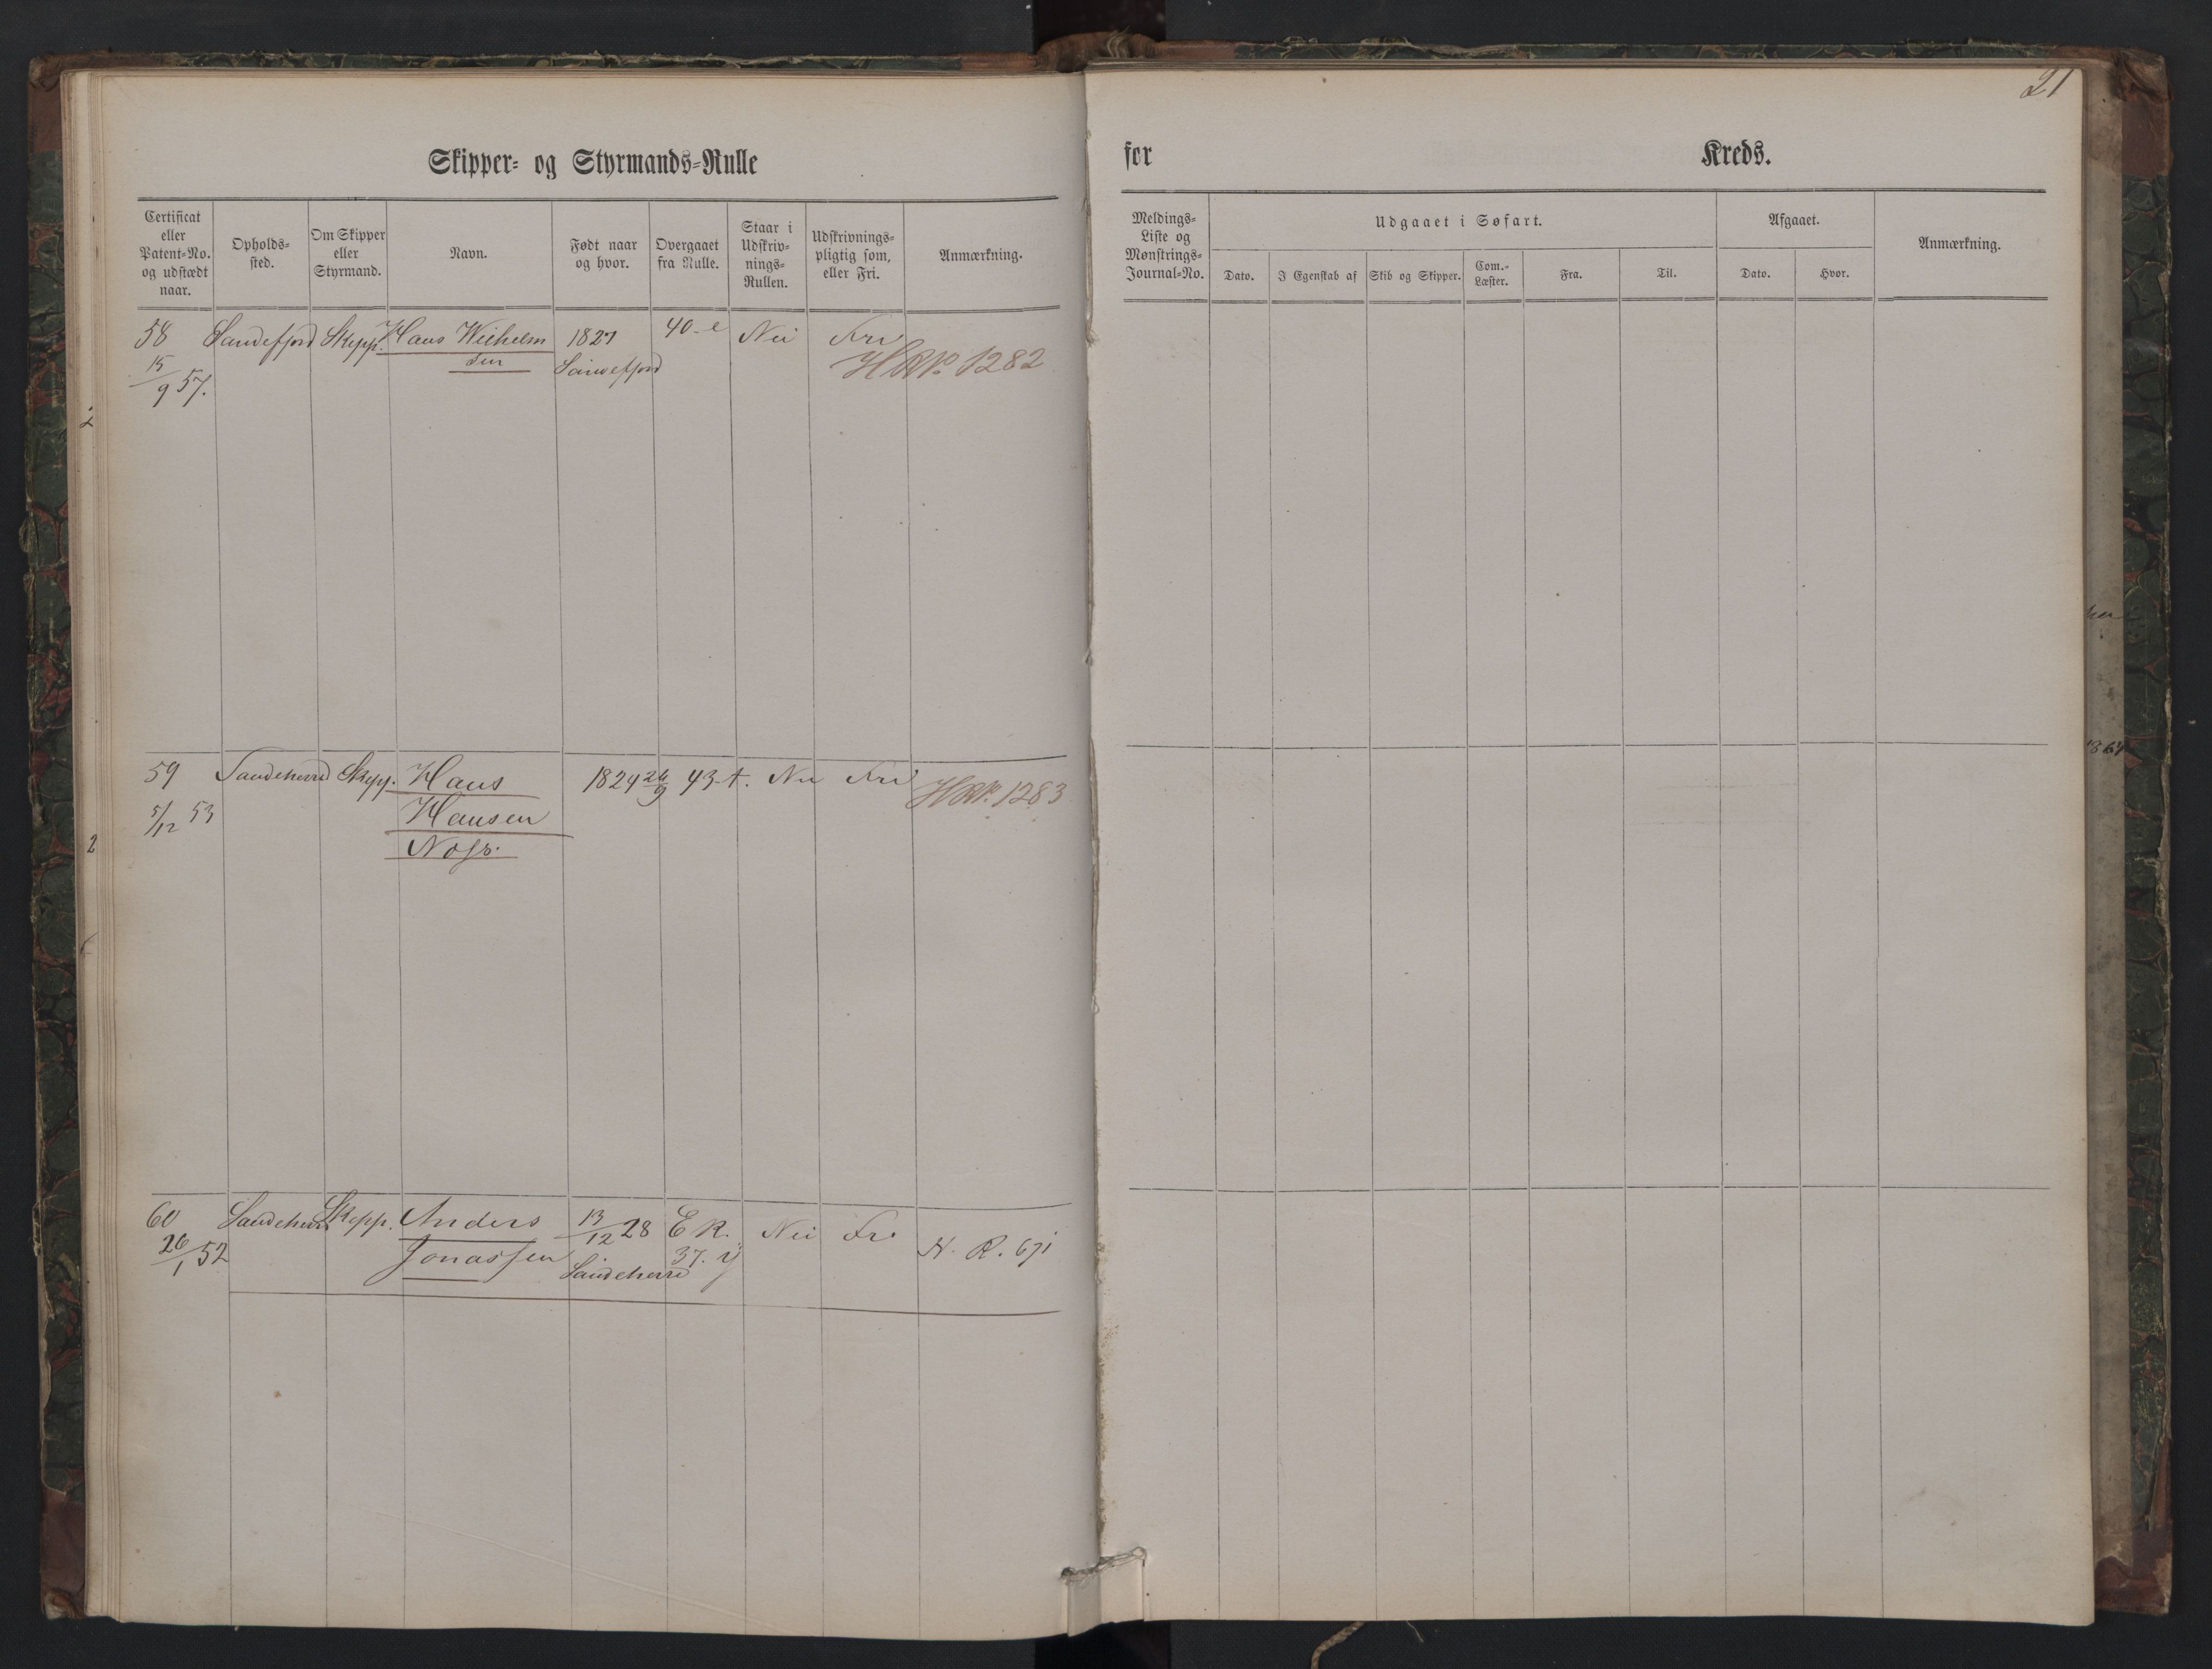 21
Skipper- og Styrmands-Rulle
for Kreds.
Certificat eller Patent-No. og udstædt naar.
Opholds-sted.
Om Skipper eller Styrmand.
Navn.
Født naar og hvor.
Overgaaet fra Rulle.
Staar i Udskriv-nings-Rullen.
Udskrivnings-pligtig som, eller Fri.
Anmærkning.
Meldings-Liste og Mønstrings-Journal-No.
Udgaaet i Søfart.
Dato.
I Egenskab af
Skib og Skipper.
Com.-Læster.
Fra.
Til.
Afgaaet.
Dato.
Hvor.
Anmærkning.
58 Sandefjord Skipp. Hans Wilhelm 1827 40-e Nei Fri
15/9 57. sen Sandefjord HRNo. 1282
59 Sandeherred Skipp. Hans 1824 26/9 43-t. Nei Fri HRNo. 1283
5/12 53 Hansen
60 Sandeherred Skipp. Anders 13/12 28 E R. Nei Fri
26/1 52 Jonassen Sandeherred 37. y N. R. 671
2
2
1864